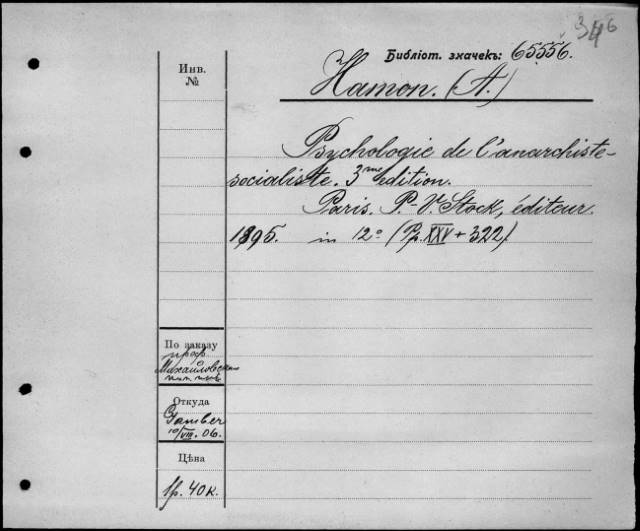 346
Библіот. значекъ: 65556.
Инв.
№
Hamon. (A.)
Psychologie de l'anarchiste-
socialiste. 3me edition.
Paris. P.-V. Stock, éditeur.
1895. in 12o (Pp. XXV + 322)
По заказу
проф.
Михайловскаго
Откуда
Gamber
10/VIII. 06.
Цѣна
1р. 40к.